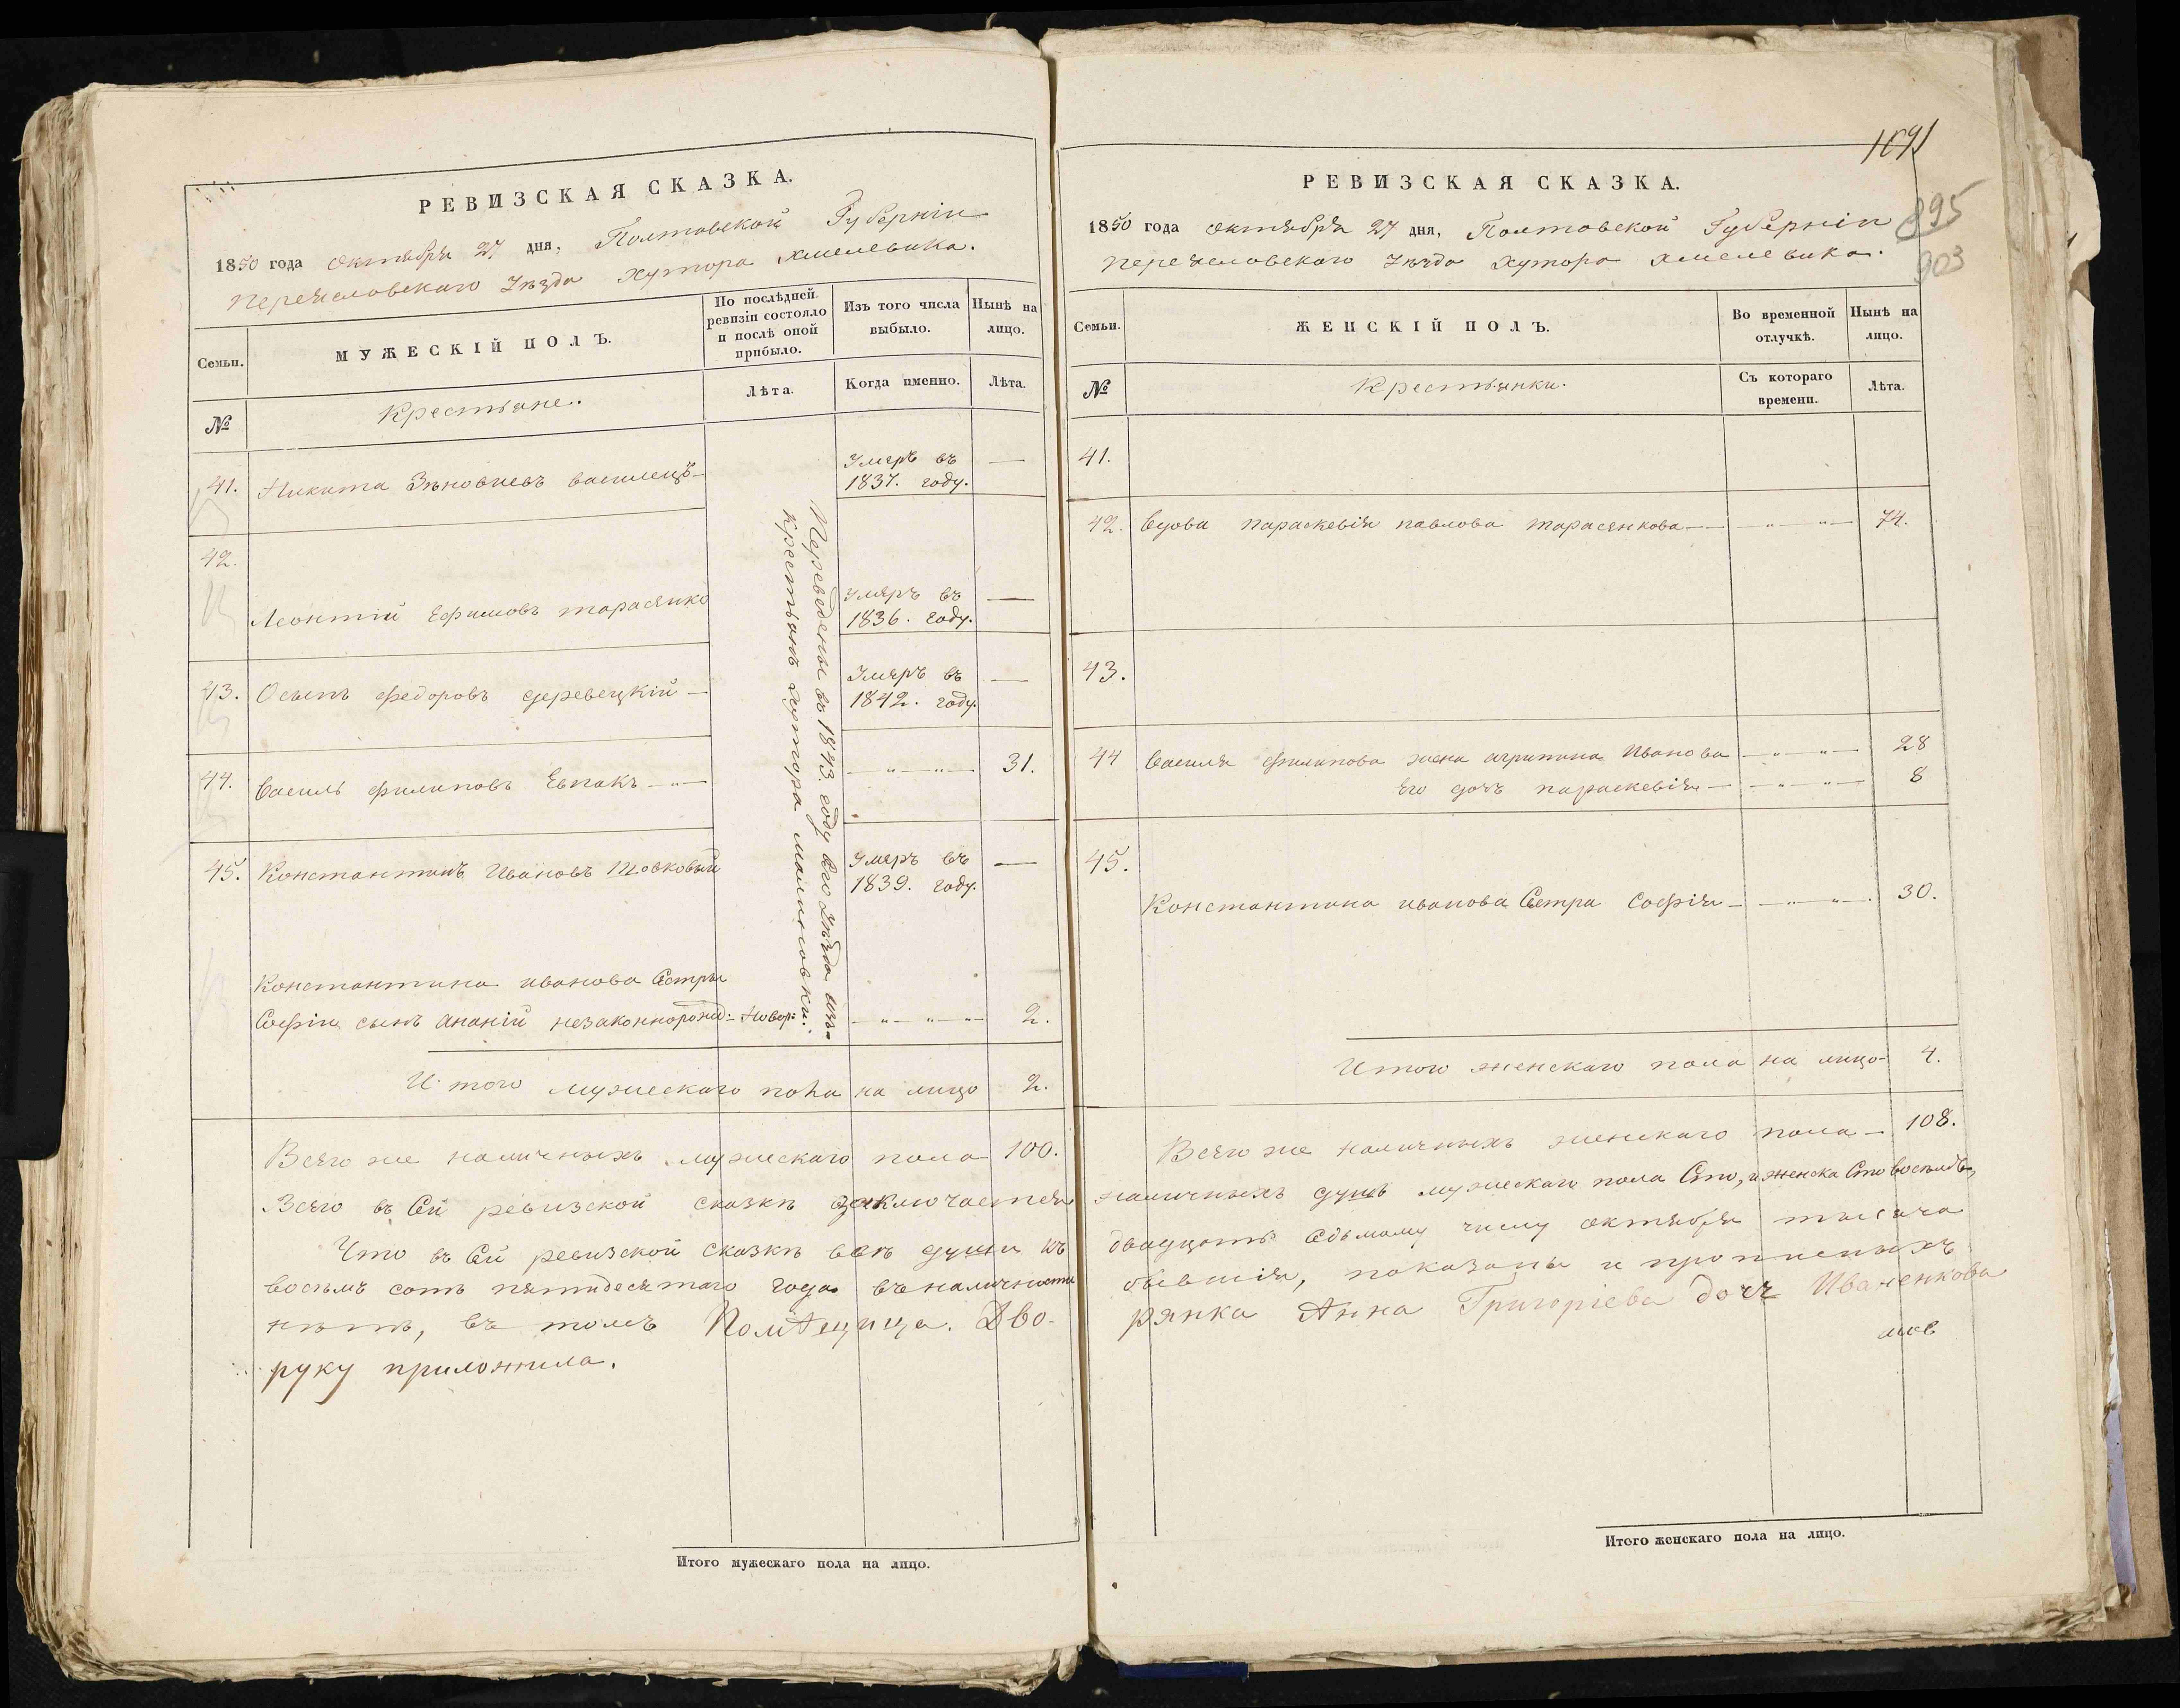 РЕВИЗСКАЯ СКАЗКА.
1850 года Октября 27 дня, Полтавской Губерніи
Переяславскаго Уѣзда Хутора Хмелевика.
Семьи.
МУЖЕСКІЙ ПОЛЪ.
По послѣдней ревизіи состояло и послѣ оной прибыло.
Изъ того числа выбыло.
Нынѣ на лицо.
№
Крестьяне.
Лѣта.
Когда именно.
Лѣта.
41. Никита Зѣновиевъ василецъ — Умеръ въ 1837. году. —
42.
Леонтій Ефимовъ тарасенко Умеръ въ 1836. году. —
43. Осипъ Федоровъ деревецкій — Умеръ въ 1842. году. —
44. Василь Филиповъ Евпакъ — " — — " — " — 31.
45. Константинъ Ивановъ Шовковый Умеръ въ 1839. году. —
Константина иванова Сестры
Софіи сынъ Ананій незаконнорожд: Новор: — " — " — 2.
Переведены въ 1843. году его Уѣзда изъ
крестьянъ хутора малиновки.
Итого мужескаго пола на лицо 2.
Всего же наличныхъ мужескаго пола 100.
Всего въ Сей ревизской сказкѣ заключается
Что въ Сей ревизской сказкѣ всѣ души къ
восемь сотъ пятидесятаго года въ наличности
нѣтъ, въ томъ Помѣщица. Дво-
руку приложила.
Итого мужескаго пола на лицо.
1091
895
903
РЕВИЗСКАЯ СКАЗКА.
1850 года Октября 27 дня, Полтавской Губерніи
Переяславскаго Уѣзда Хутора Хмелевика.
Семьи.
ЖЕНСКІЙ ПОЛЪ.
Во временной отлучкѣ.
Нынѣ на лицо.
№
Крестьянки.
Съ котораго времени.
Лѣта.
41.
42. Вдова параскевія павлова тарасенкова — — " — " — 74.
43.
44 Василя Филипова жена агрипина Иванова — " — " — 28
Его дочь параскевія — — " — " — 8
45.
Константина иванова Сестра Софія — — " — " — 30.
Итого женскаго пола на лицо 4.
Всего же наличныхъ женскаго пола — 108.
наличныхъ душъ мужескаго пола Сто, и женска Сто восемь,
двадцать Седьмому числу октября тысяча
бывшія, показаны и прописныхъ
рянка Анна Григоріева дочь Иваненкова